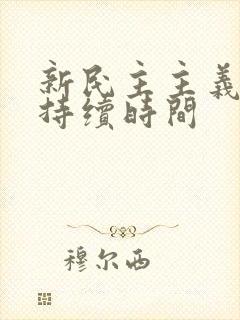 新民主主義
持續時間
穆尔西